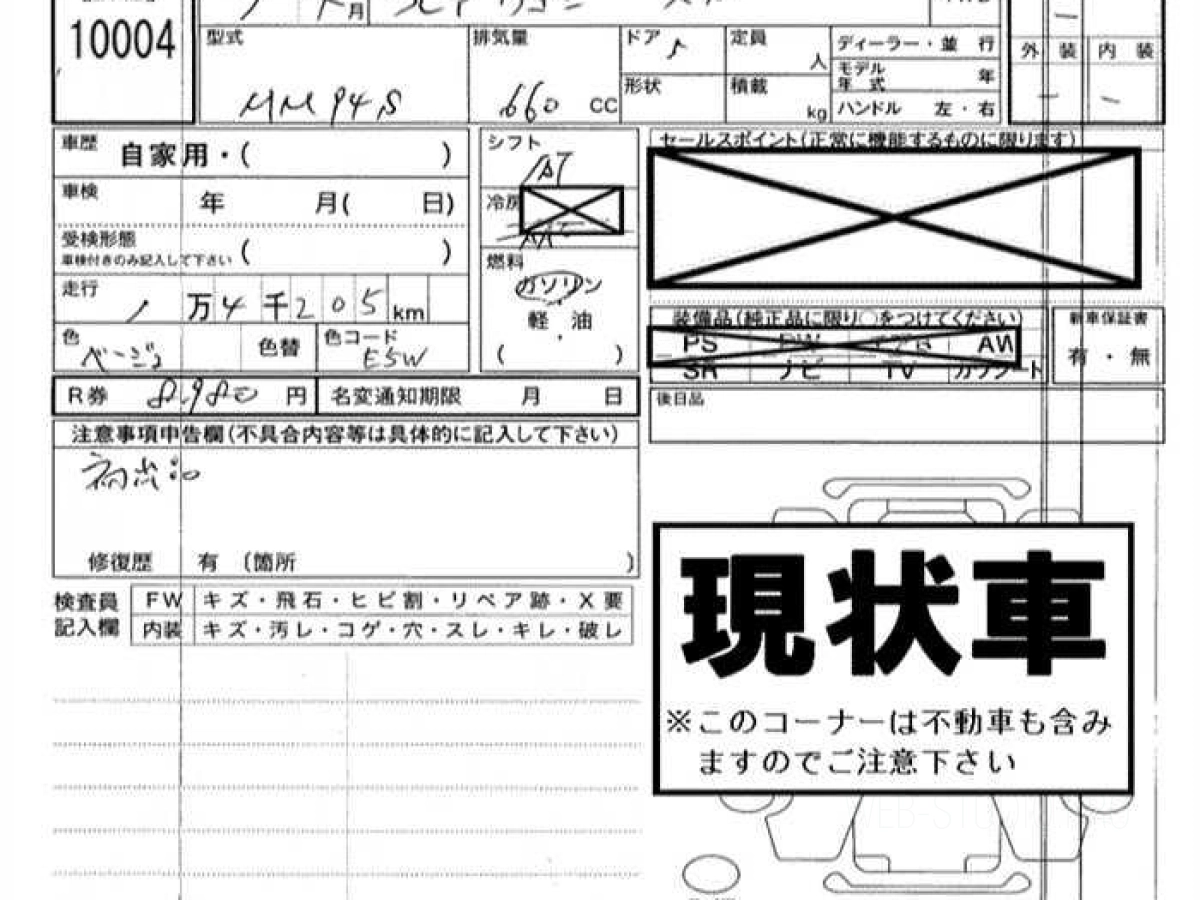 10004
月
型式 MM94S
排気量 660 CC
ドア 5
定員 人
形状
積載 kg
ディーラー・並 行
モデル年式 年
ハンドル 左・右
外 装 内 装
車歴 自家用・( )
車検 年 月( 日)
受検形態 ( )
車検付きのみ記入して下さい
走行 1 万 4 千 2 0 5 km
色 ベージュ 色替 色コード
R券 8,980 円 名変通知期限 月 日
シフト AT
冷房
燃料
ガソリン
軽 油
( )
セールスポイント(正常に機能するものに限ります)
装備品(純正品に限り○をつけてください)
PS AW
SR ナビ TV カワシート
新車保証書
有・無
後日品
注意事項申告欄(不具合内容等は具体的に記入して下さい)
修復歴 有 (箇所 )
検査員 FW キズ・飛石・ヒビ割・リペア跡・X要
記入欄 内装 キズ・汚レ・コゲ・穴・スレ・キレ・破レ
現状車
※このコーナーは不動車も含み
ますのでご注意下さい